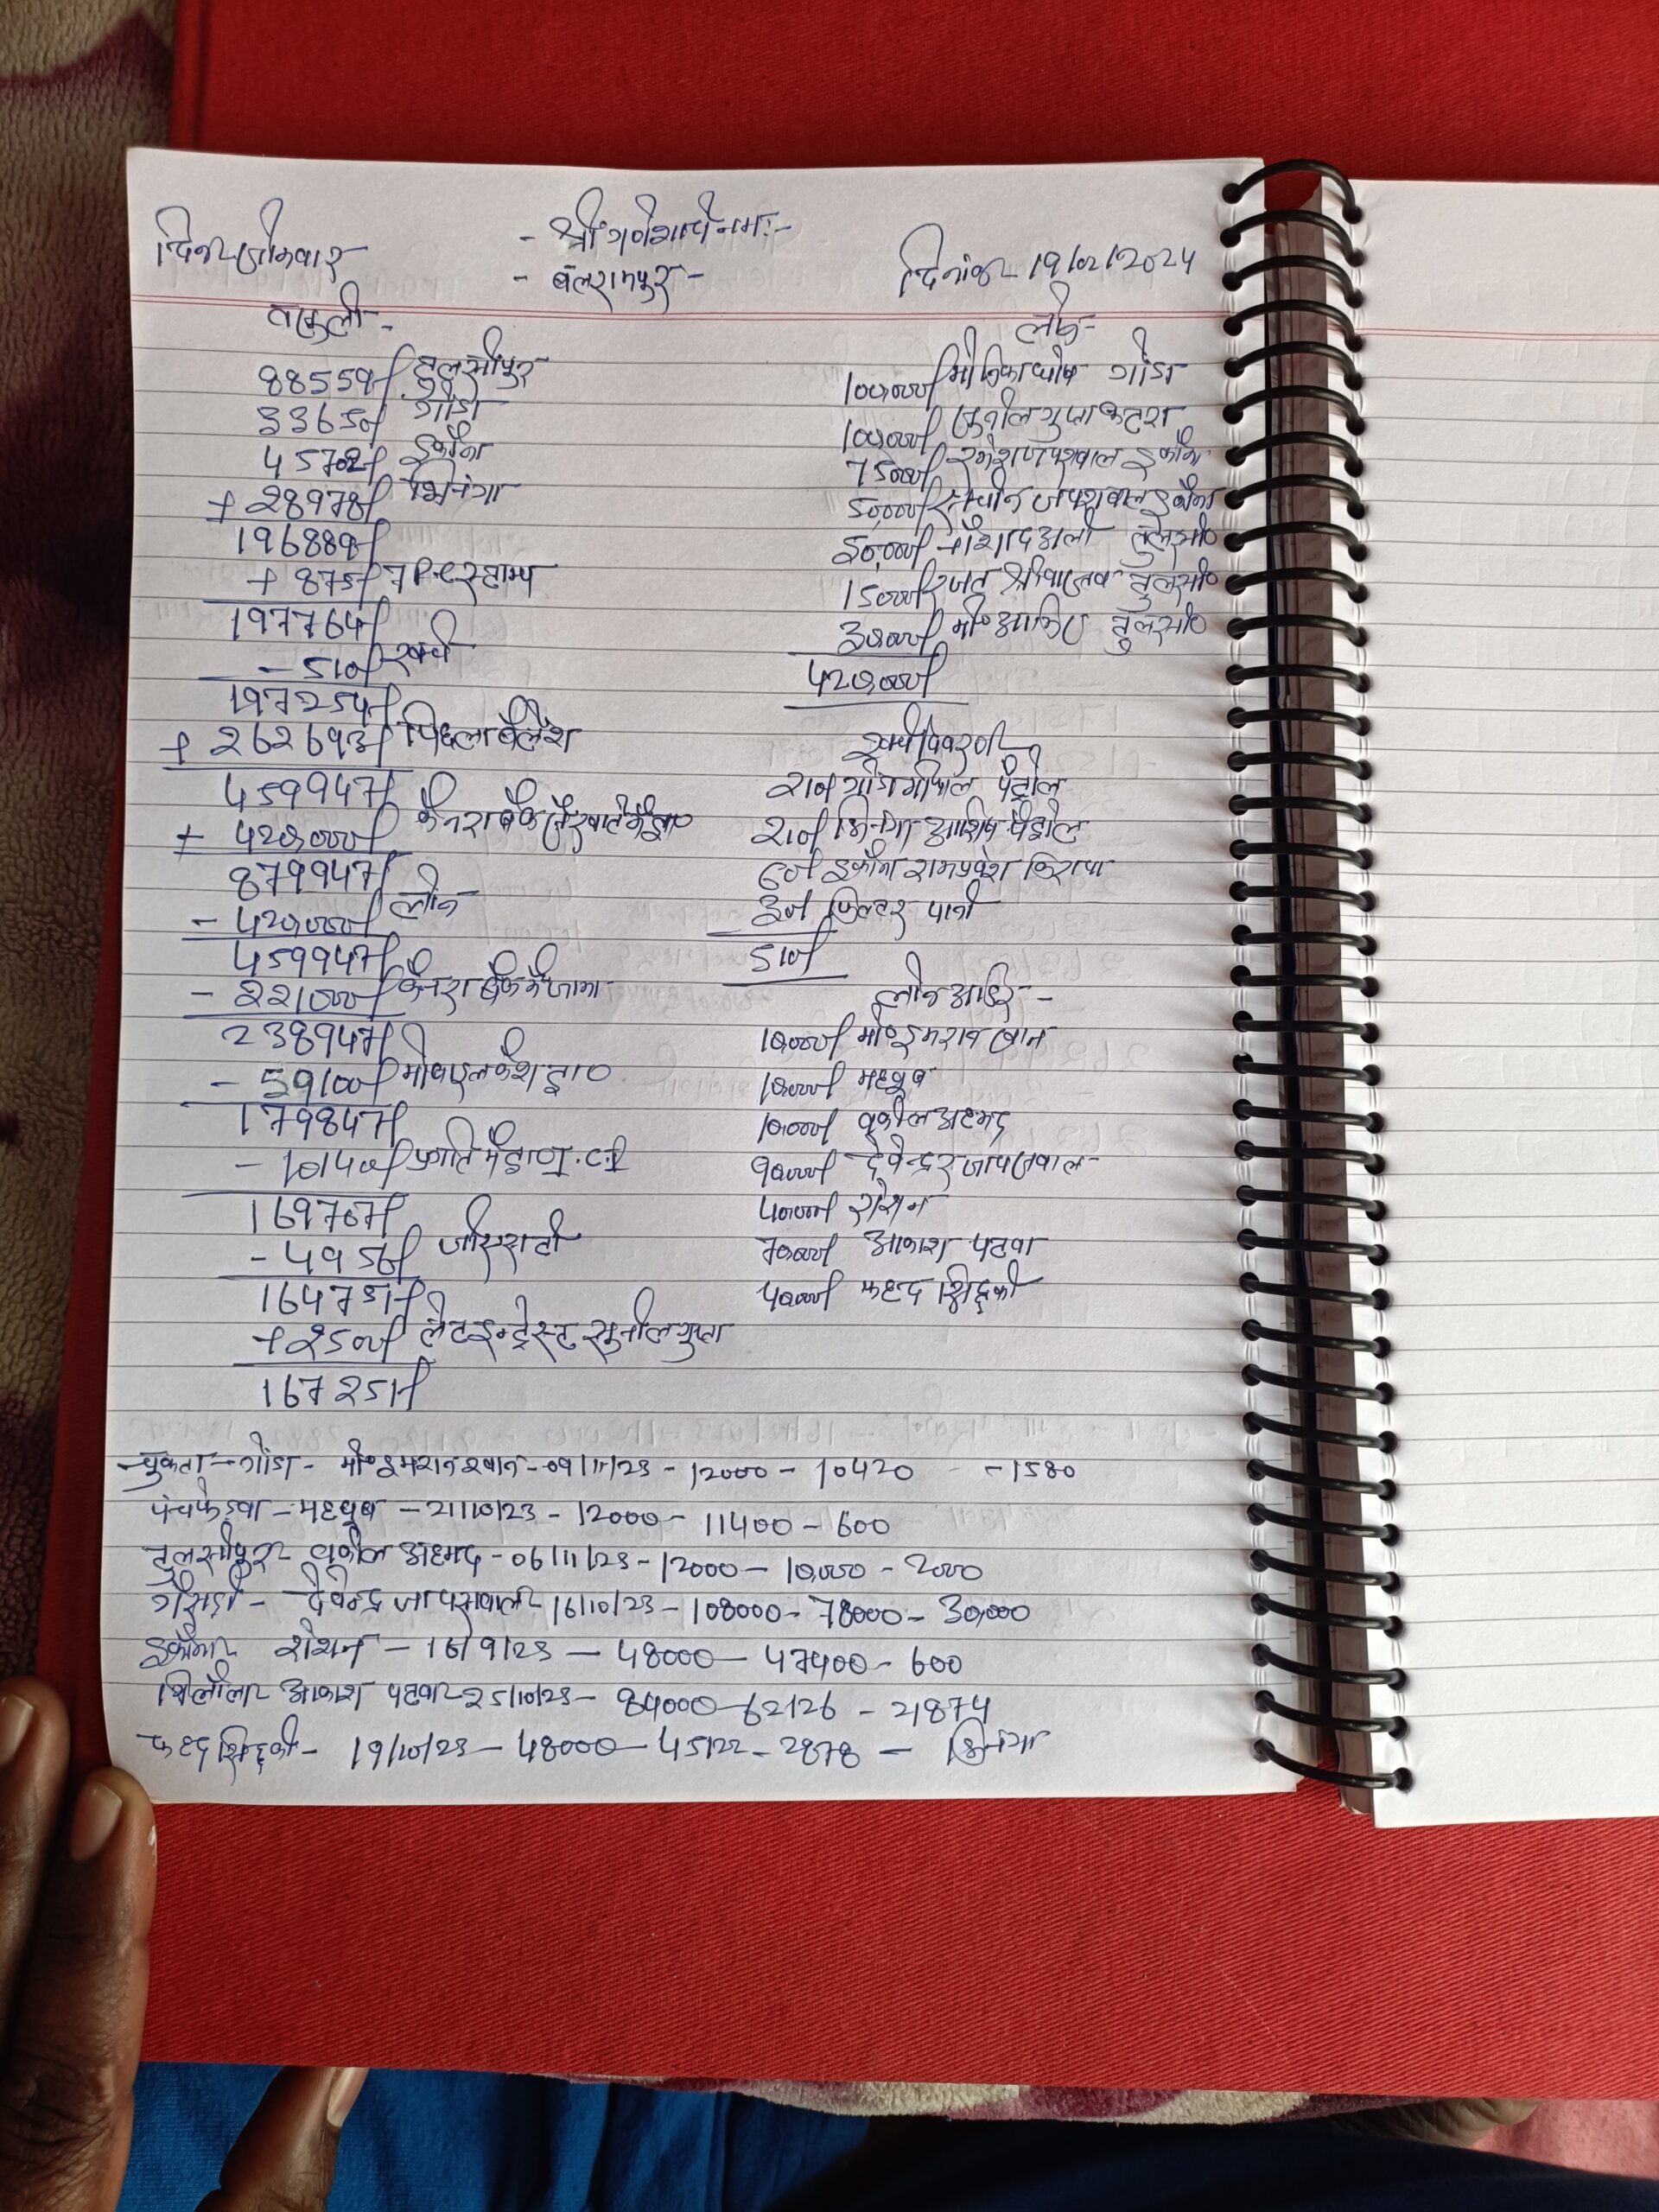 - श्री गणेशाये नमः -
दिन - सोमवार - बलरामपुर - दिनांक - 19/02/2024
वसूली -
88559/ तुलसीपुर
33650/ गोंडा
45702/ इकौना
+ 28978/ भिनगा
196889/
+ 875/ 7 P.C स्टाम्प
197764/
- 510/ खर्च
197254/
+ 262693/ पिछला बैलेंश
459947/
+ 420,000/ कैनरा बैंक खाते से ड्रा०
879947/
- 420,000/ लोन
459947/
- 221000/ कैनरा बैंक में जमा
238947/
- 59100/ कैश ड्रा०
179847/
- 10140/
169707/
- 4956/
164751/
+ 2500/ लेट इन्ट्रेस्ट सुनील गुप्ता
167251/
लोन -
100,000/ गोंडा
100,000/ सुनील गुप्ता कटरा
75000/ रमेश जायसवाल इकौना
50,000/ जायसवाल इकौना
50,000/ नौशाद अली तुलसी०
15000/ रजत श्रीवास्तव तुलसी०
30,000/ मो० आकिब तुलसी०
420,000/
खर्च विवरण -
210/ गोंडा पेट्रोल
210/ भिनगा आशिष पेट्रोल
60/ इकौना रामप्रवेश किराया
30/ फिल्टर पानी
510/
लोन आडिर -
10,000/ मो० इमरान खान
10,000/ महबूब
10,000/ वकील अहमद
90,000/ देवेन्द्र जायसवाल -
40,000/ रोशन
70,000/ आकाश पटवा
40,000/ फहद सिद्दकी
चुकता - गोंडा - मो० इमरान खान - 09/11/23 - 12000 - 10420 - 1580
पंचपेड़वा - महबूब - 21/10/23 - 12000 - 11400 - 600
तुलसीपुर - वकील अहमद - 06/11/23 - 12000 - 10,000 - 2000
गैसड़ी - देवेन्द्र जायसवाल - 16/10/23 - 108000 - 78000 - 30,000
इकौना - रोशन - 16/9/23 - 48000 - 47400 - 600
आकाश पटवा - 25/10/23 - 84000 - 62126 - 21874
फहद सिद्दकी - 19/10/23 - 48000 - 45122 - 2878 - भिनगा